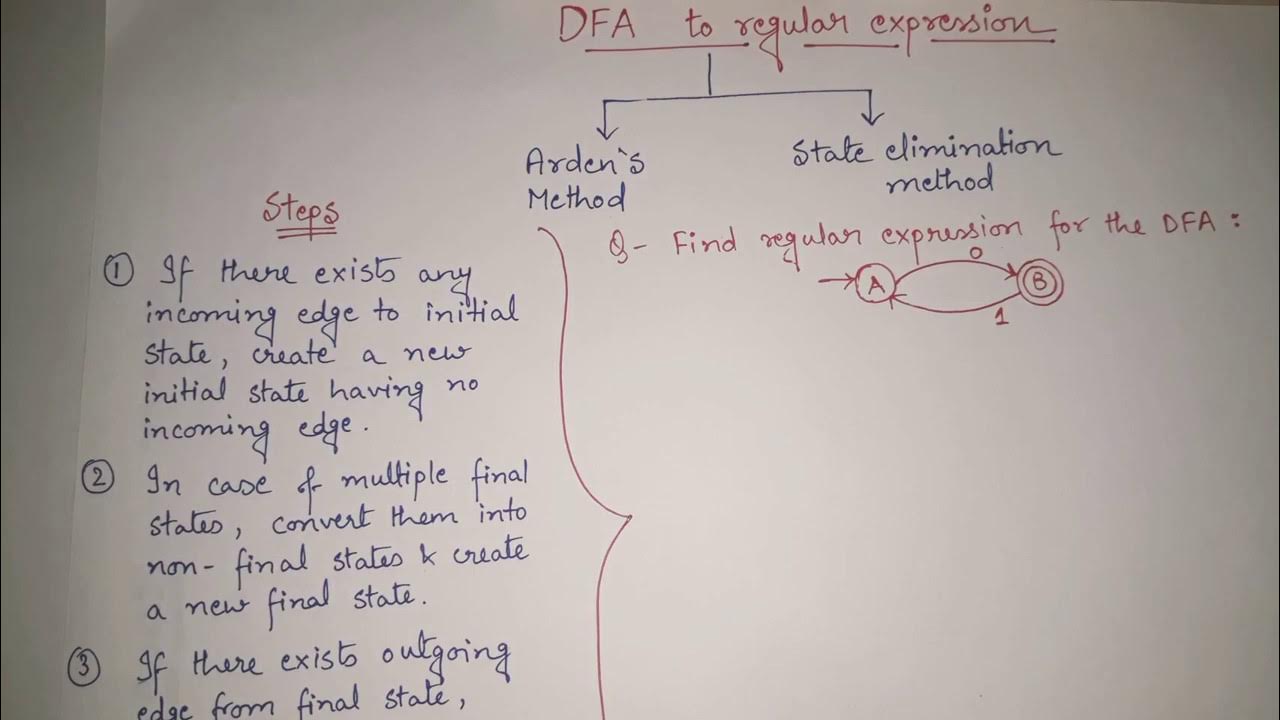 DFA to regular expression
Arden's
Method
State elimination
method
Steps
① If there exists any
incoming edge to initial
state, create a new
initial state having no
incoming edge.
② In case of multiple final
states, convert them into
non-final states & create
a new final state.
③ If there exists outgoing
edge from final state,
Q- Find regular expression for the DFA :
0
A
B
1